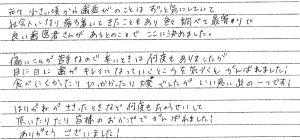 元々 小さい頃から歯並びのことは ずっと気にしていて
社会人になり 落ち着いてきたこともあり 色々 調べて 最寄りで
良い歯医者さんが あるとのことで ここに決めました。
痛いことが 苦手なので 辛いときは 何度もありましたが
日に日に 歯が キレイになっていくところを 気づくと がんばれました！
食べにくかったり ひっかかったり 大変 でしたが いい思い出の一つです！
はりがねが ささったときなど 何度もおうかがいして
頂いたりたり 皆様の おかげで がんばれました！
ありがとう ございました！